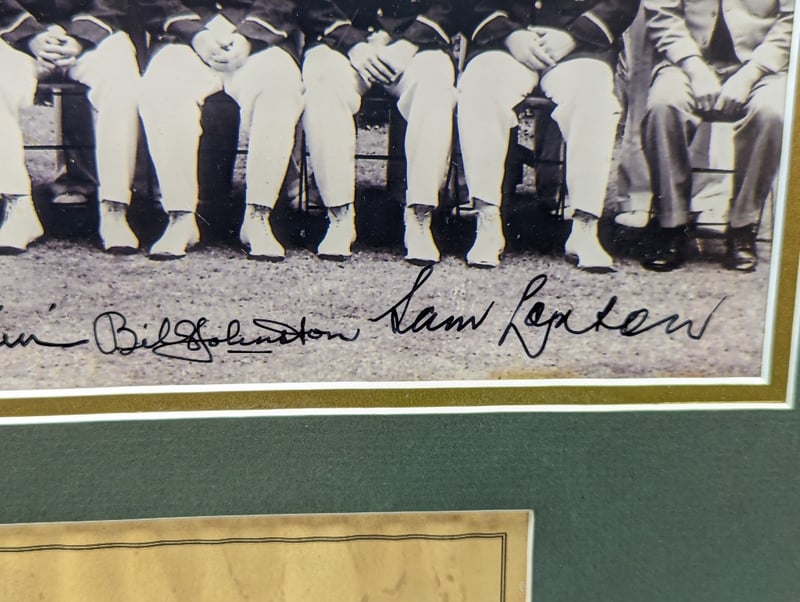 Bill Johnston Sam Loxton